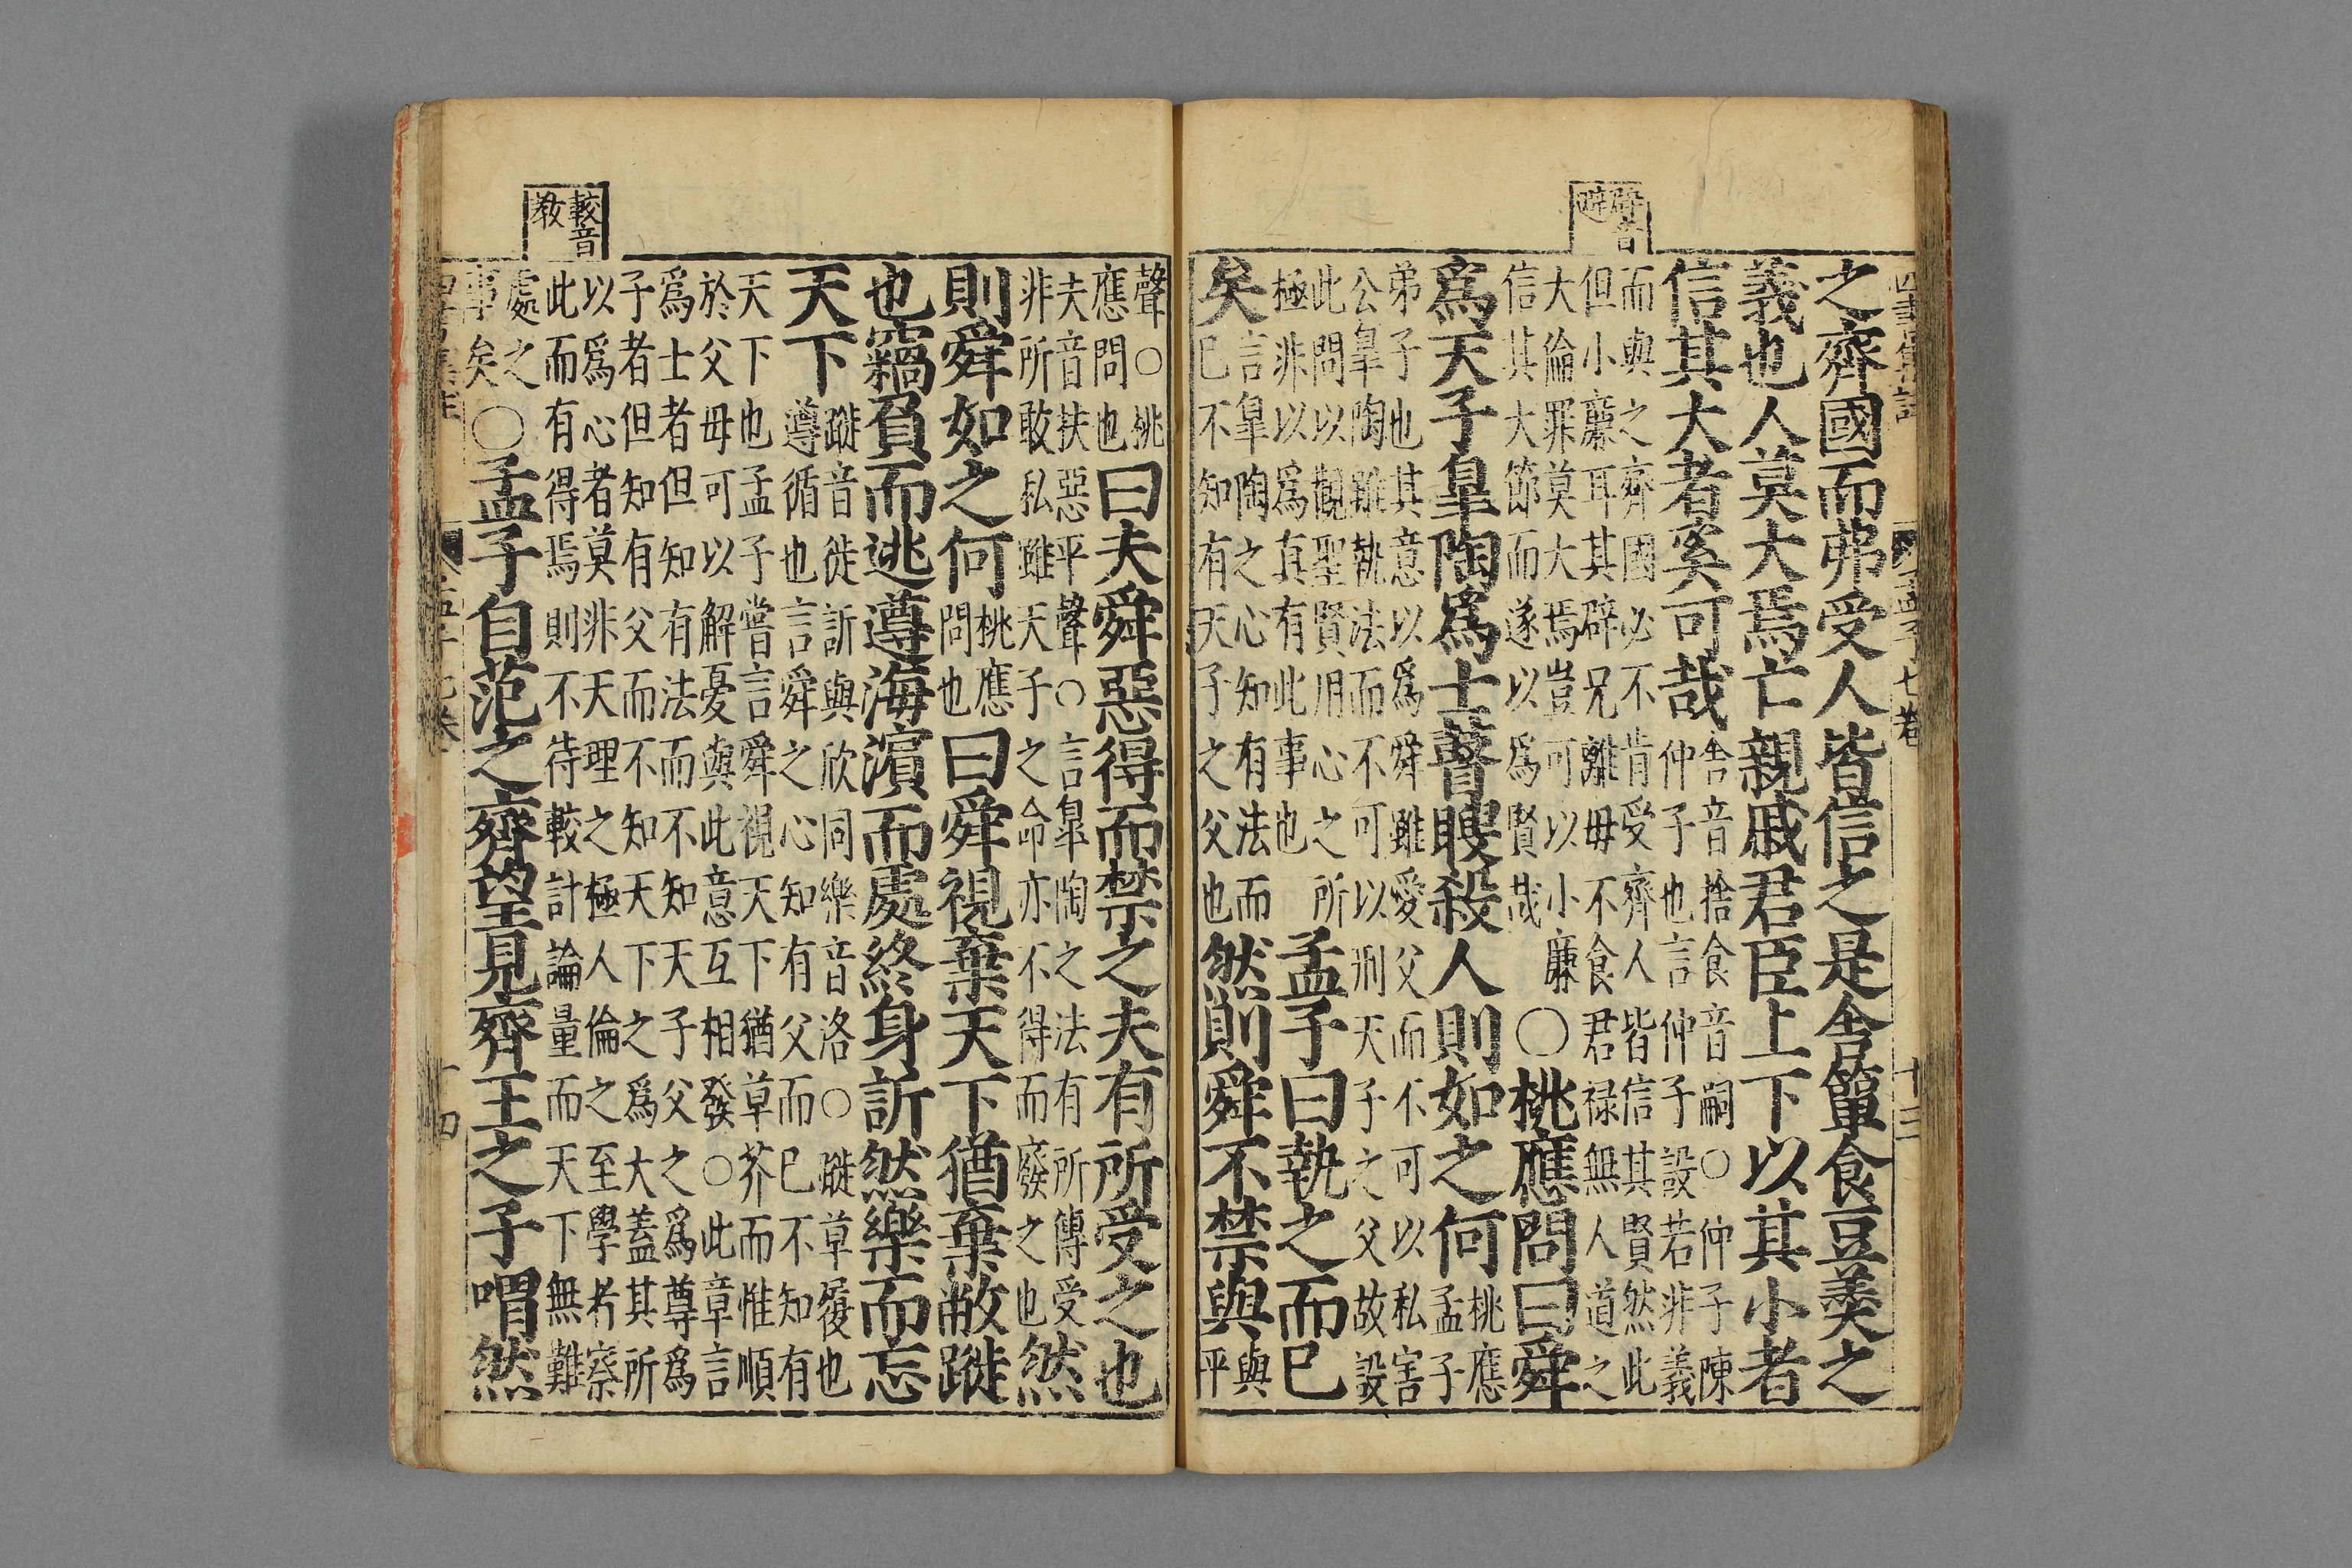 四書集註 孟子七卷 十三
辟音避
之齊國而弗受人皆信之是舍簞食豆羹之
義也人莫大焉亡親戚君臣上下以其小者
信其大者奚可哉
舍音捨食音嗣○仲子陳
仲子也言仲子設若非義
而與之齊國必不肯受齊人皆信其賢然此
但小廉耳其辟兄離母不食君祿無人道之
大倫罪莫大焉豈可以小廉
信其大節而遂以爲賢哉
○桃應問曰舜
爲天子皐陶爲士瞽瞍殺人則如之何
桃應
孟子
弟子也其意以爲舜雖愛父而不可以私害
公皐陶雖執法而不可以刑天子之父故設
此問以觀聖賢用心之所
極非以爲真有此事也
孟子曰執之而已
矣
言皐陶之心知有法而
已不知有天子之父也
然則舜不禁與
與
平
聲○桃
應問也
曰夫舜惡得而禁之夫有所受之也
夫音扶惡平聲○言皐陶之法有所傳受
非所敢私雖天子之命亦不得而廢之也
然
則舜如之何
桃應
問也
曰舜視棄天下猶棄敝蹝
也竊負而逃遵海濱而處終身訢然樂而忘
天下
蹝音徙訢與欣同樂音洛○蹝草履也
遵循也言舜之心知有父而已不知有
天下也孟子嘗言舜視天下猶草芥而惟順
於父母可以解憂與此意互相發○此章言
爲士者但知有法而不知天子父之爲尊爲
子者但知有父而不知天下之爲大蓋其所
以爲心者莫非天理之極人倫之至學者察
此而有得焉則不待較計論量而天下無難
較音教
處之
事矣
○孟子自范之齊望見齊王之子喟然